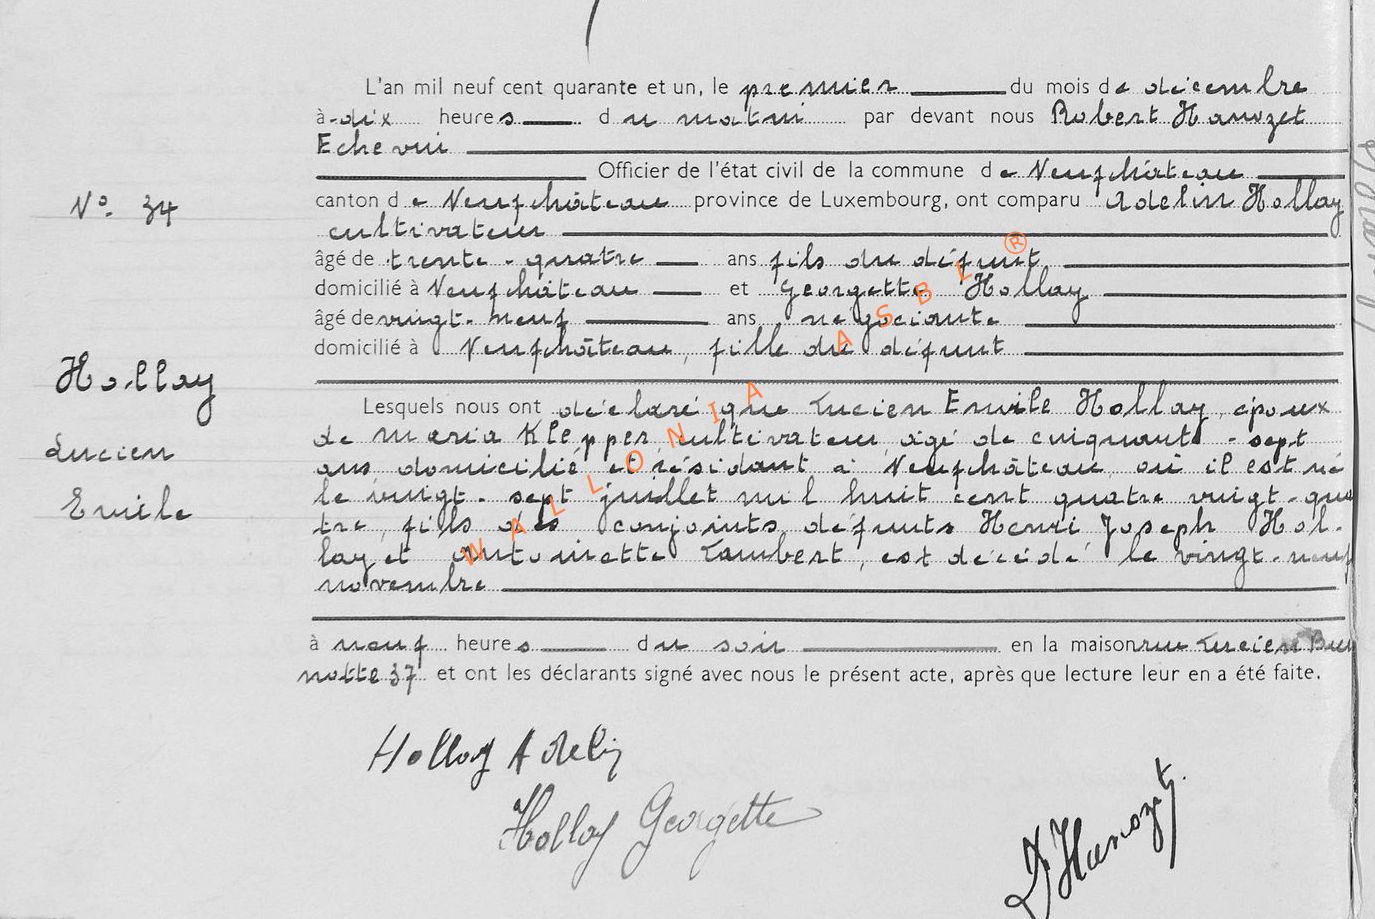 L'an mil neuf cent quarante et un, le premier du mois de décembre
à dix heures du matin par devant nous Robert Hanozet
Echevin
Officier de l'état civil de la commune de Neufchâteau
N° 34
canton de Neufchâteau province de Luxembourg, ont comparu Adelin Hollay
cultivateur
âgé de trente-quatre ans fils du défunt
domicilié à Neufchâteau et Georgette Hollay
âgé de vingt-neuf ans négociante
domicilié à Neufchâteau, fille du défunt
Hollay
Lucien
Emile
Lesquels nous ont déclaré que Lucien Emile Hollay, époux
de Maria Klepper cultivateur âgé de cinquante-sept
ans domicilié et résidant à Neufchâteau où il est né
le vingt-sept juillet mil huit cent quatre vingt-qua
tre, fils des conjoints défunts Henri Joseph Hol-
lay et Antoinette Lambert, est décédé le vingt-neuf
novembre
à neuf heures du soir en la maison rue Lucien Bur
notte 37 et ont les déclarants signé avec nous le présent acte, après que lecture leur en a été faite.
WALLONIA ASBL ®
Hollay Adelin
Hollay Georgette
Dr Hanozet